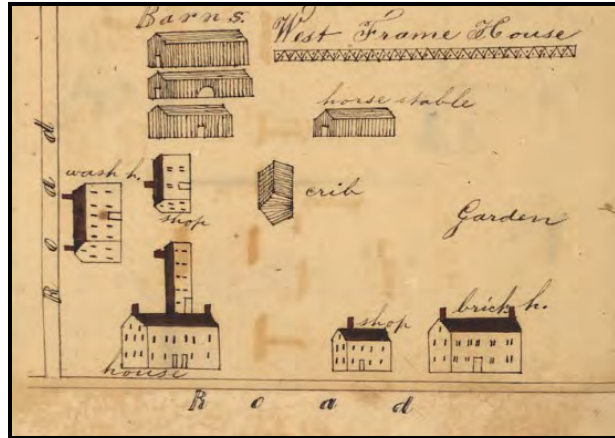 Barns.
West Frame House
horse stable
Road
wash h.
shop
crib
Garden
shop
brick h.
house
Road